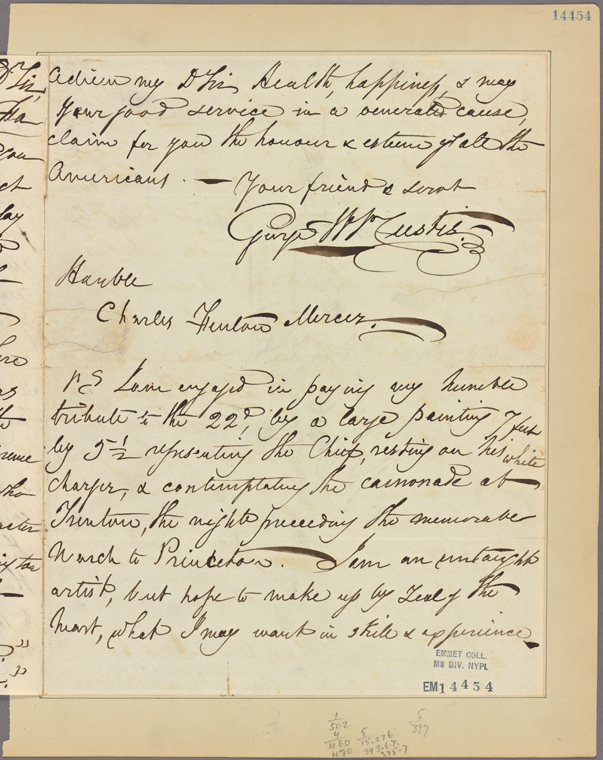 14454
Adieu my D Sir Health, happiness, & may
your good service in a venerated cause,
claim for you the honour & esteem of all the
Americans. — Your friend & servt
George W P Custis
Honble
Charles Fenton Mercer.
PS I am engaged in paying my humble
tribute to the 22d, by a large painting 7 feet
by 5 1/2 representing the Chief, resting on his white
charger, & contemplating the cannonade at
Trenton, the night preceeding the memorable
March to Princeton. I am an untaught
artist, but hope to make up by Zeal of the
heart, what I may want in skill & experience
EMMET COLL.
MS DIV. NYPL
EM14454